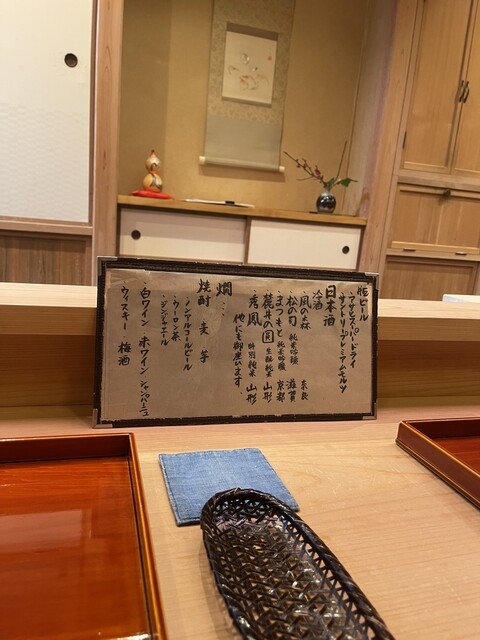 瓶ビール
・アサヒスーパードライ
・サントリープレミアムモルツ
日本酒
冷酒
・風の森 奈良
・松の司 純米吟醸 滋賀
・まつもと 純米吟醸 京都
・麓井の圓 生酛純米 山形
・秀鳳 特別純米 山形
他にも御座います。
燗…
焼酎 麦 芋
・ノンアルコールビール
・ウーロン茶
・ジンジャエール
・白ワイン 赤ワイン シャンパーニュ
・ウイスキー・梅酒